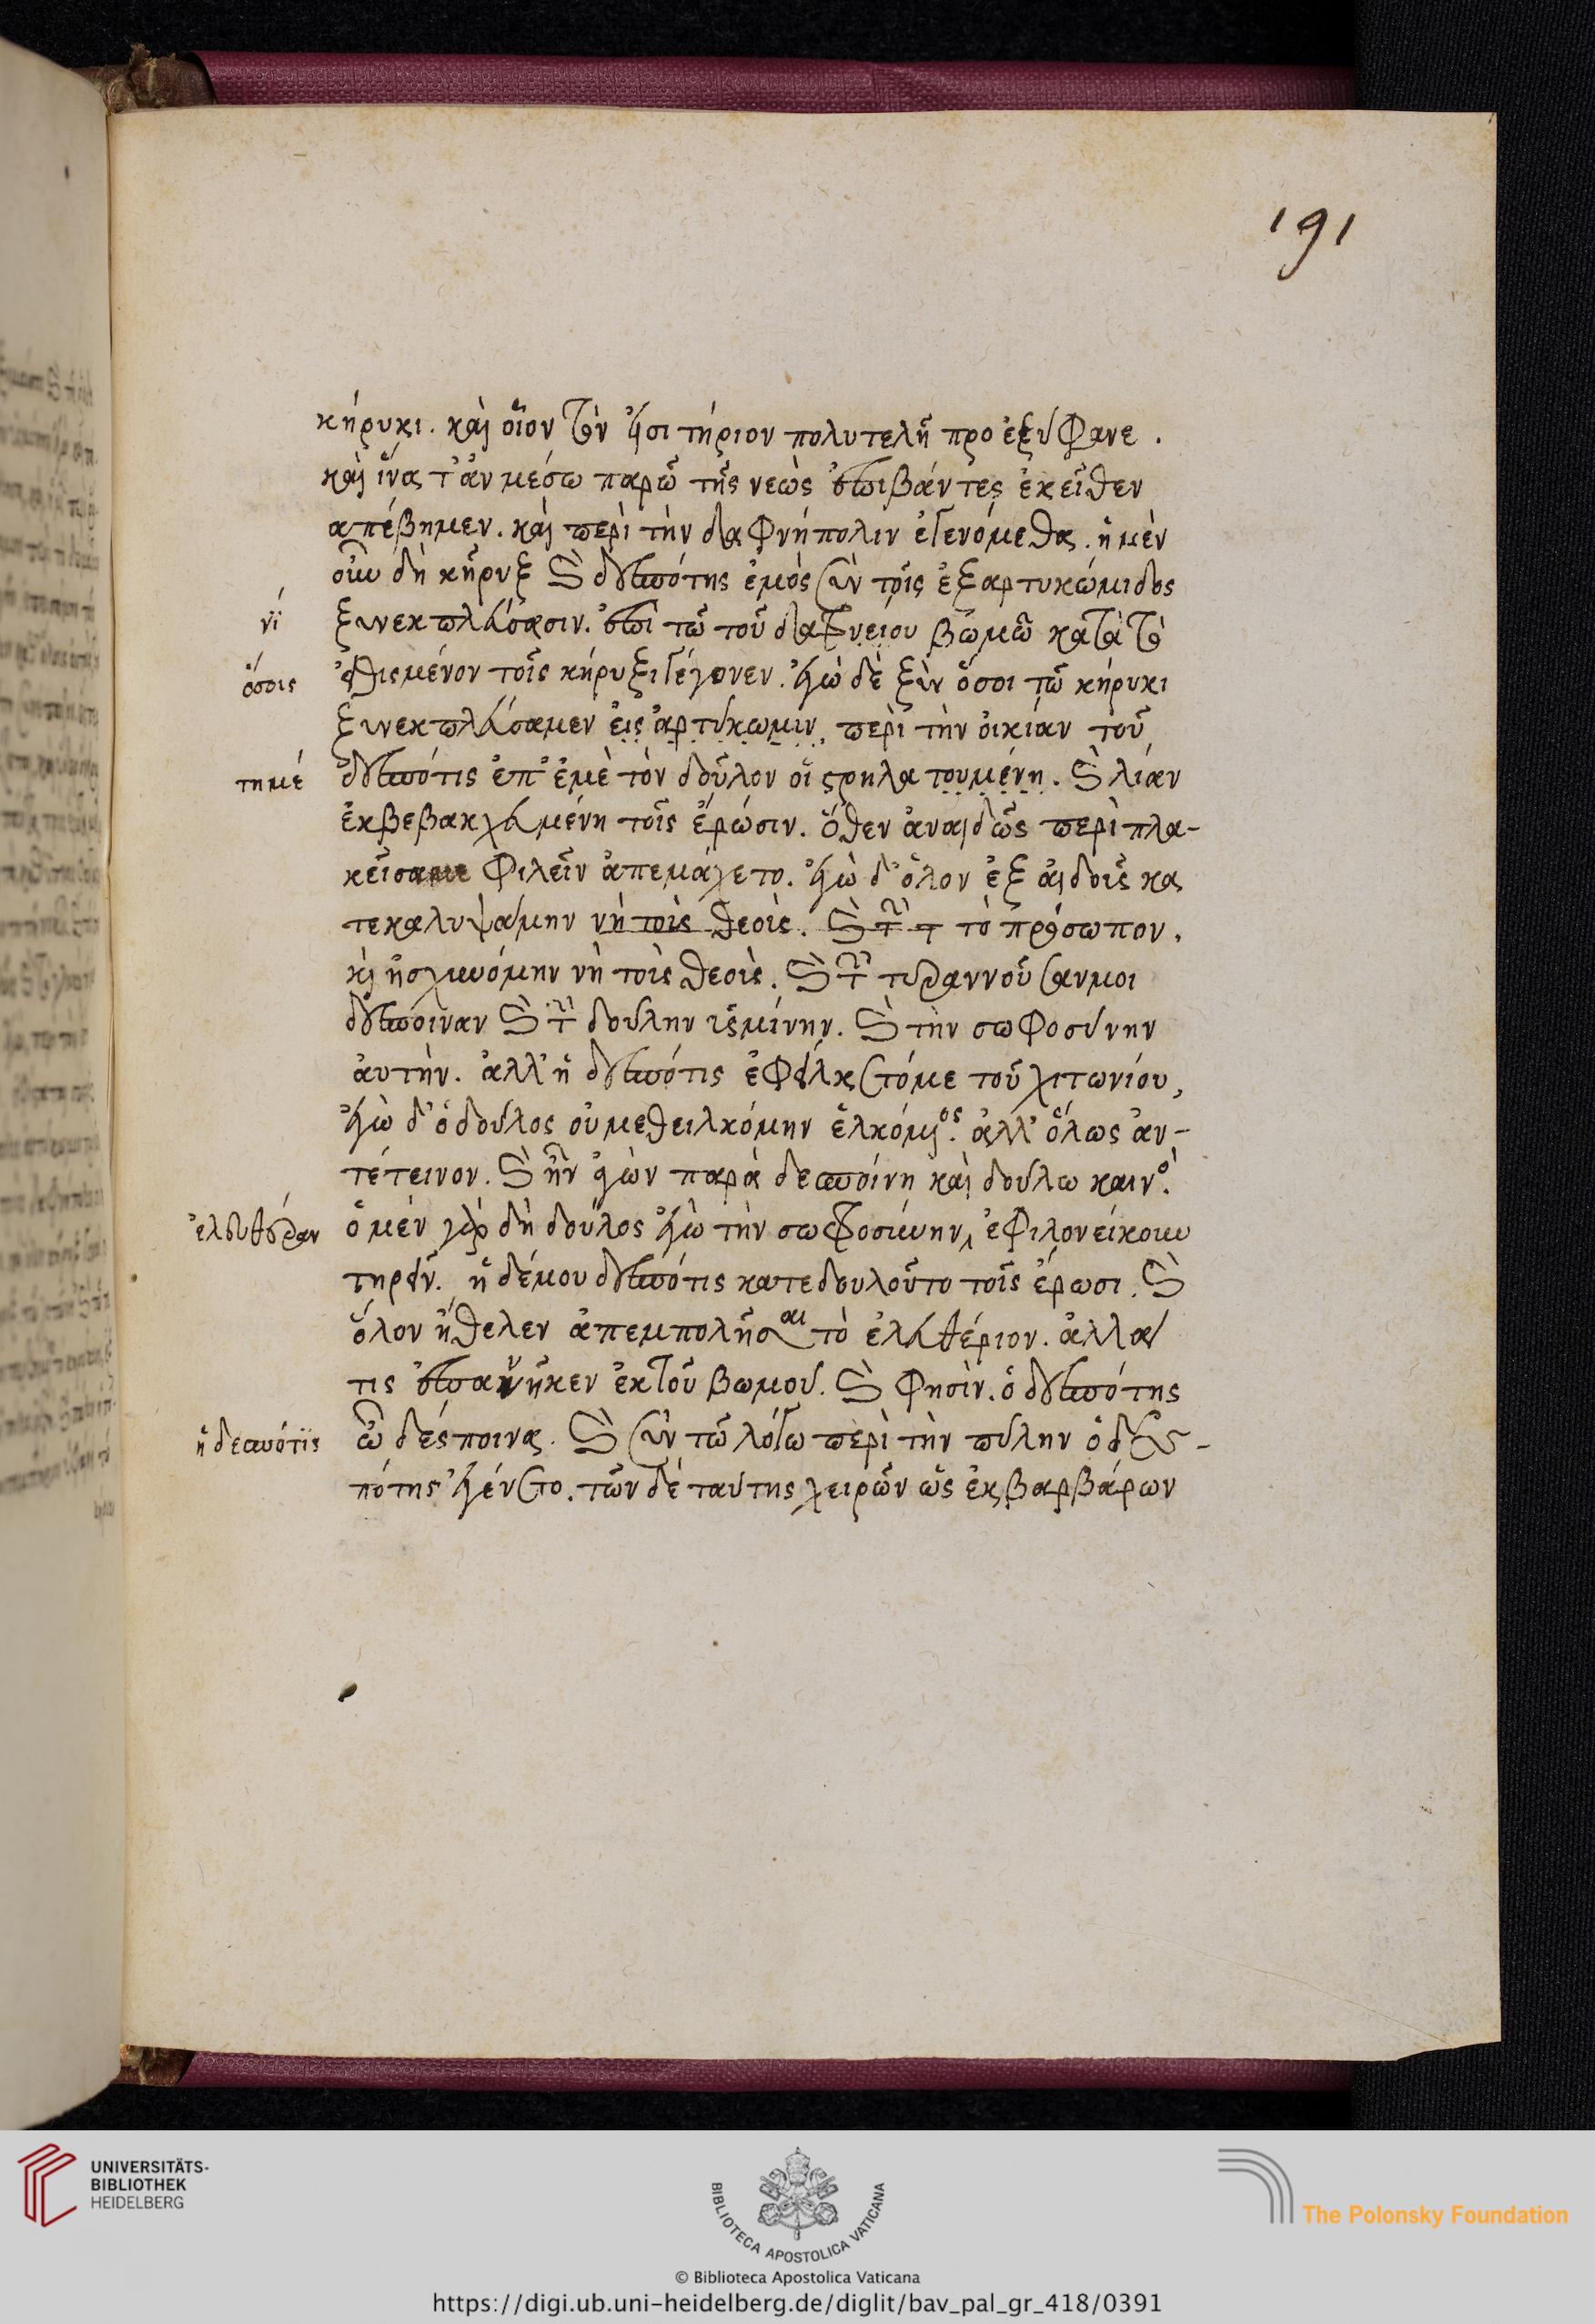 191
κήρυκι. καὶ οἷον τὸν ἐξιτήριον πολυτελῆ προεξύφανε.
καὶ ἵνα τἀν μέσω παρῶ τῆς νεὼς ἐπιβάντες ἐκεῖθεν
απέβημεν. καὶ περὶ τὴν δαφνήπολιν ἐγενόμεθα. ἡ μὲν
οὖν δὴ κῆρυξ καὶ δεσπότης ἐμὸς σὺν τοῖς ἐξ αρτυκώμιδος
νί
ξυνεκπλεύσασιν. ἐπὶ τῶ τοῦ δαφνείου βωμῶ κατὰ τὸ
ὅσοις
εἰθισμένον τοῖς κήρυξι γέγονεν. ἐγὼ δὲ ξὺν ὅσοι τῶ κήρυκι
ξυνεκπλεύσαμεν εἰς ἀρτύκωμιν, περὶ τὴν οἰκίαν τοῦ
τημέ
δεσπότις ἐπ' ἐμὲ τὸν δοῦλον οἰστρηλατουμένη. καὶ λίαν
ἐκβεβακχευμένη τοῖς ἐρώσιν. ὅθεν ἀναιδῶς περὶ πλα-
κεῖσα με φιλεῖν ἀπεμάχετο. ἐγὼ δ' ὅλον ἐξ αἰδοῦς κα
τεκαλυψάμην νὴ τοὺς θεοὺς. καὶ τὴν τ τὸ πρόσωπον,
καὶ ἠσχυνόμην νὴ τοὺς θεοὺς. καὶ τὴν τυραννοῦσαν μοι
δέσποιναν καὶ τὴν δούλην ὑσμίνην. καὶ τὴν σωφοσύνην
ἀυτὴν. ἀλλ' ἡ δεσπότις ἐφείλκετό με τοῦ χιτωνίου,
ἐγὼ δ' ὁ δοῦλος οὐ μεθειλκόμην ἑλκόμενος. ἀλλ' ὅλως ἀν-
τέτεινον. καὶ ἦν ἀγὼν παρὰ δεσποίνη καὶ δούλω καινὸς.
ἐλευθέραν
ὁ μὲν γὰρ δὴ δοῦλος ἐγὼ τὴν σωφοσύνην, ἐφιλονείκουν
τηρεῖν. ἡ δέ μου δεσπότις κατεδουλοῦτο τοῖς ἔρωσι. καὶ
ὅλον ἤθελεν ἀπεμπολῆσαι τὸ ἐλευθέριον. ἀλλά
τις ἐπανῆκεν ἐκ τοῦ βωμοῦ. καὶ φησὶν. ὁ δεσπότης
ἡ δεσπότϊς
ὦ δέσποινα. καὶ σὺν τῶ λόγω περὶ τὴν πύλην ὁ δεσ-
πότης ἐγένετο. τῶν δὲ ταύτης χειρῶν ὡς ἐκ βαρβάρων
UNIVERSITÄTS-
BIBLIOTHEK
HEIDELBERG
BIBLIOTECA APOSTOLICA VATICANA
The Polonsky Foundation
© Biblioteca Apostolica Vaticana
https://digi.ub.uni-heidelberg.de/diglit/bav_pal_gr_418/0391